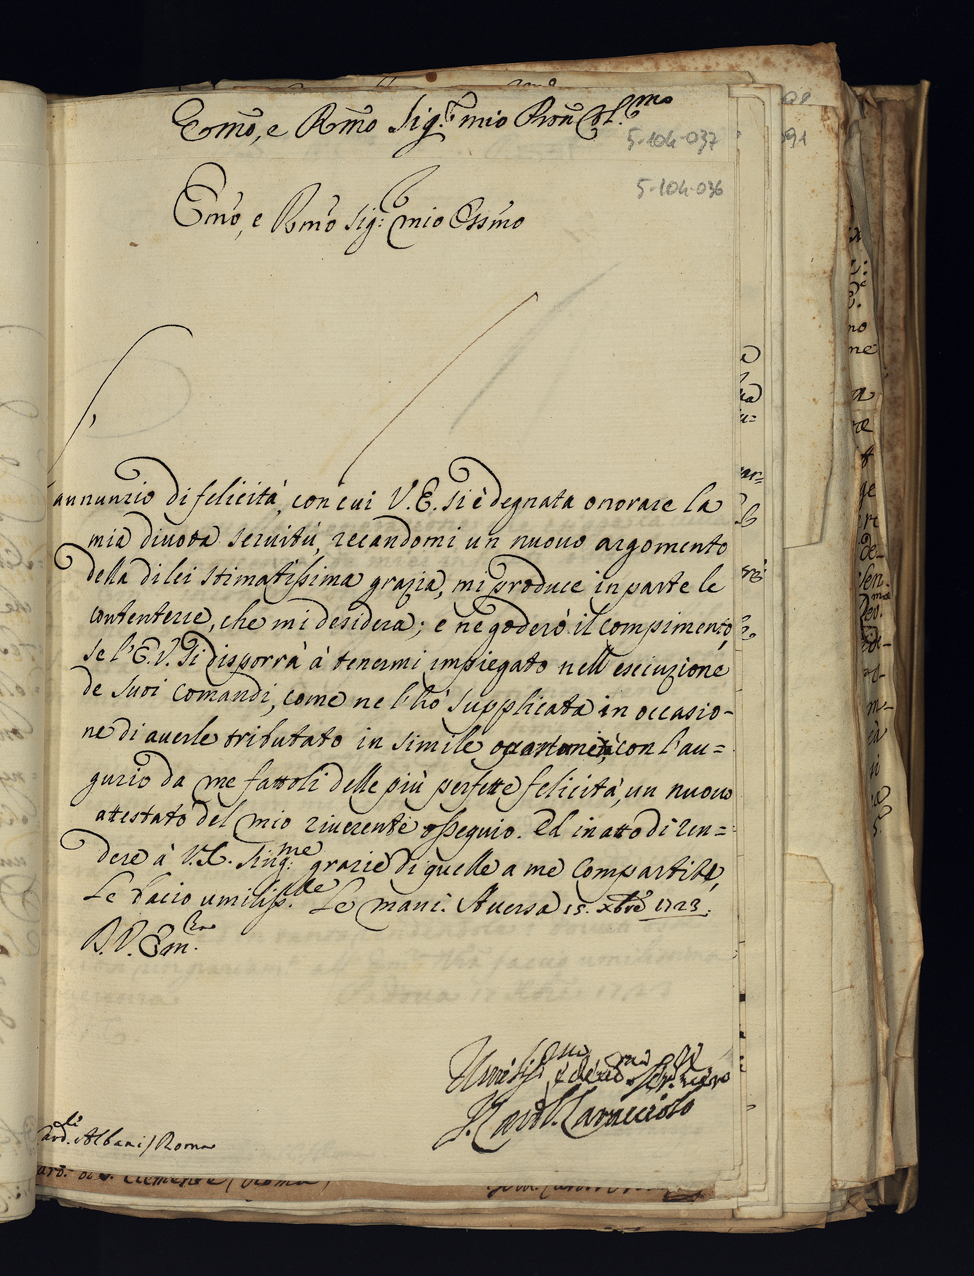 Emo, e Rmo Sig.r mio Pron Col.mo
5-104-037
5-104-036
Emo, e Rmo Sig.r mio Ossmo
L'annunzio di felicità, con cui V.E. si è degnata onorare la
mia divota servitù, recandomi un nuovo argomento
della di lei stimatissima grazia, mi produce in parte le
contentezze, che mi desidera; e ne goderò il compimento,
se l'E.V. si disporrà à tenermi impiegato nell'esecuzione
de suoi comandi, come ne l'hò supplicata in occasio-
ne di averle tributato in simile con l'au=
gurio da me fattoli delle più perfette felicità, un nuovo
attestato del mio riverente ossequio. Ed in atto di ren=
dere à V.E. sing.me grazie di quelle a me compartite,
Le bacio umiliss.te Le mani. Aversa 15. Xbre 1723.
D.V. Em.za
Servre vero
J. Card. Caracciolo
Card. Albani / Roma
Card. di S. Clemente / Roma /